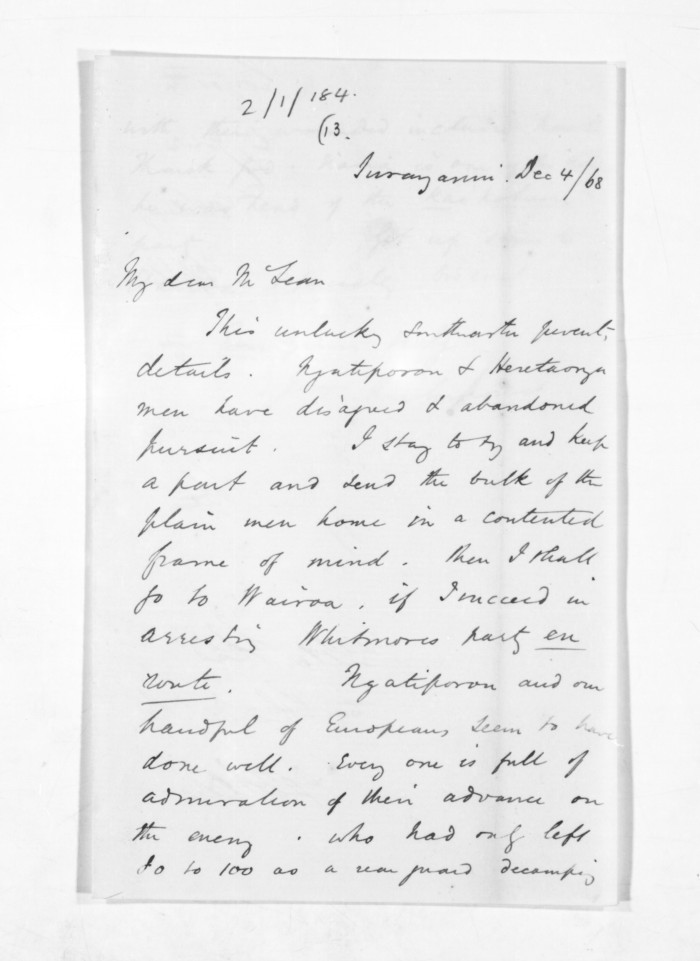 2/1/184.
(13.
Turanganui. Dec 4/68
My dear McLean
This unlucky southeaster prevents
details. Ngatiporou & Heretaonga
men have disagreed & abandoned
pursuit. I stay to try and keep
a part and send the bulk of the
plain men home in a contented
frame of mind. Then I shall
go to Wairoa. if I succeed in
arresting Whitmores party en
route. Ngatiporou and our
handful of Europeans seem to have
done well. Every one is full of
admiration of their advance on
the enemy. who had only left
80 to 100 as a rear guard decamping